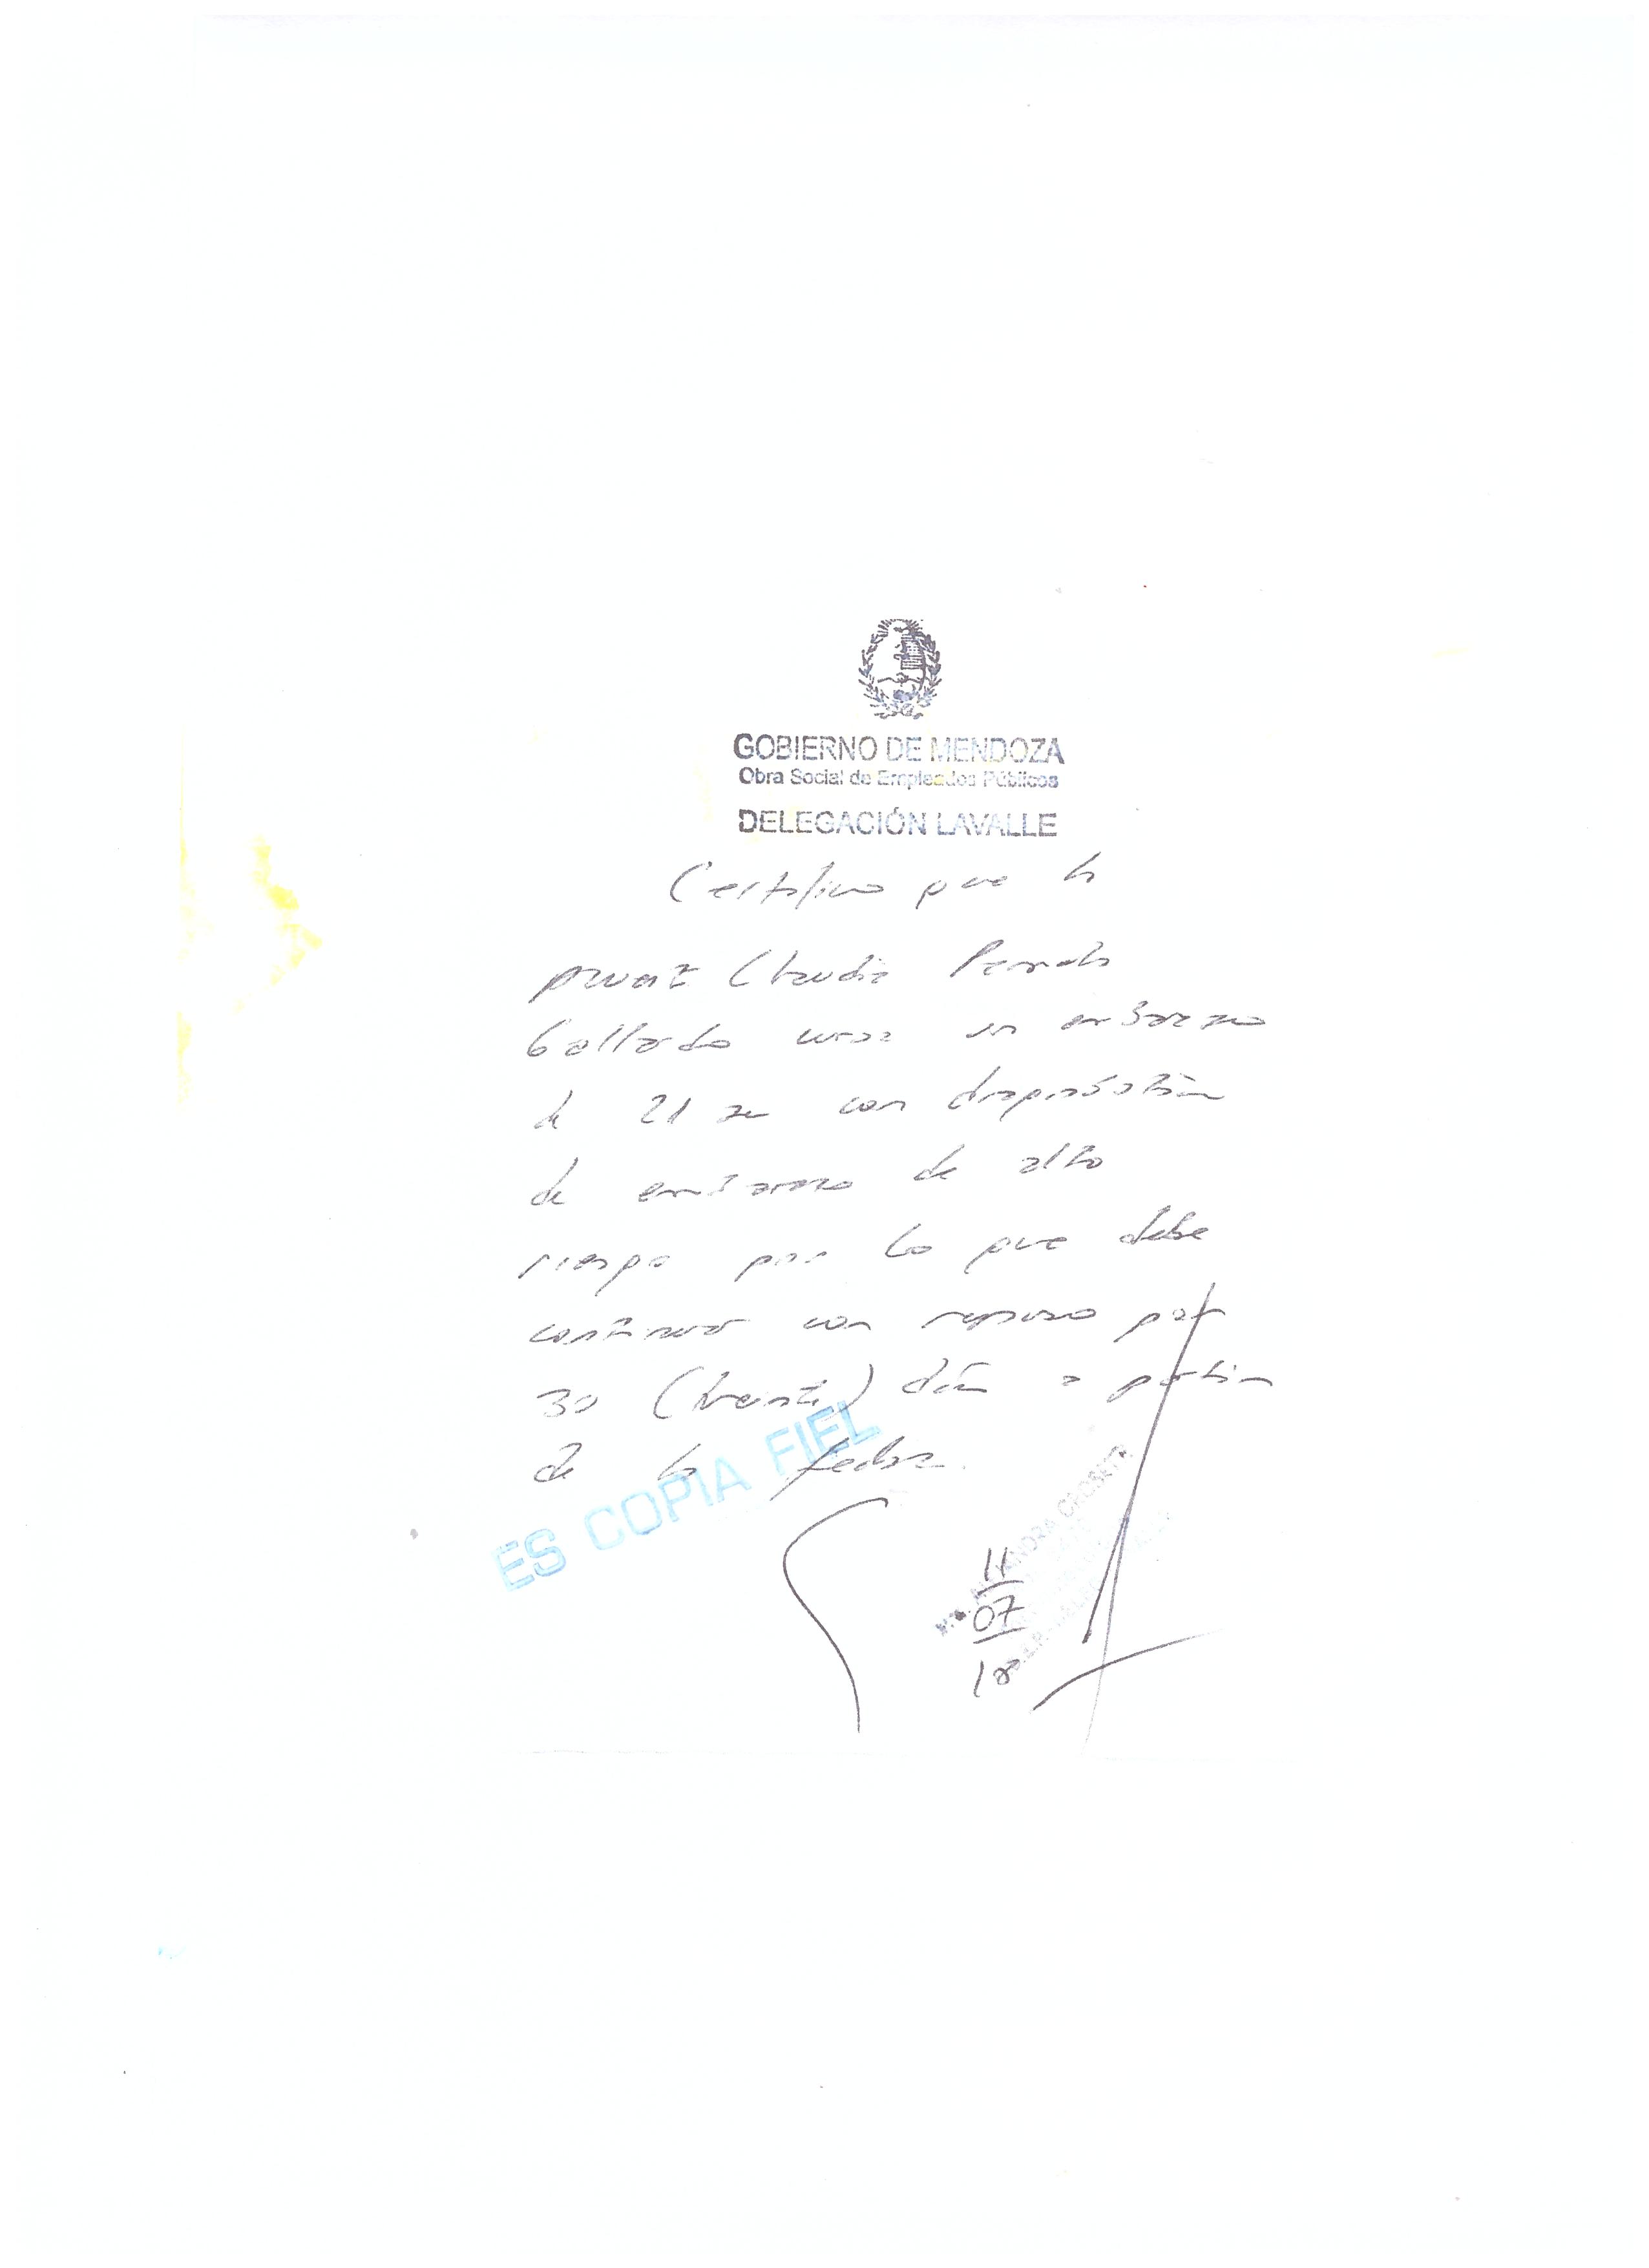 GOBIERNO DE MENDOZA
Obra Social de Empleados Públicos
DELEGACIÓN LAVALLE
Certifico que la
Claudia
Gallardo cursa un embarazo
de 21 se con
de embarazo de alto
riesgo por lo que debe
continuar con reposo por
30 (treinta) días a partir
de la fecha.
ES COPIA FIEL
11
07
18